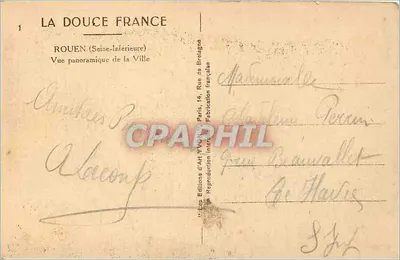 1
LA DOUCE FRANCE
ROUEN (Seine-Inférieure)
Vue panoramique de la Ville
Amitiés
A Lecomp
Les Editions d'Art Yvon, Paris, 14, Rue de Bretagne
Reproduction interdite Fabrication française
CPAPHIL
Mademoiselle
Perrin
Beauvallet
Le Havre
S. Inf